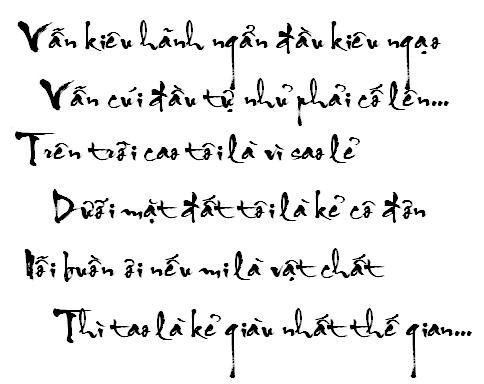 Vẫn kiêu hãnh ngẩn đầu kiêu ngạo
Vẫn cúi đầu tự nhủ phải cố lên...
Trên trời cao tôi là vì sao lẻ
Dưới mặt đất tôi là kẻ cô đơn
Nỗi buồn ơi nếu mi là vật chất
Thì tao là kẻ giàu nhất thế gian...